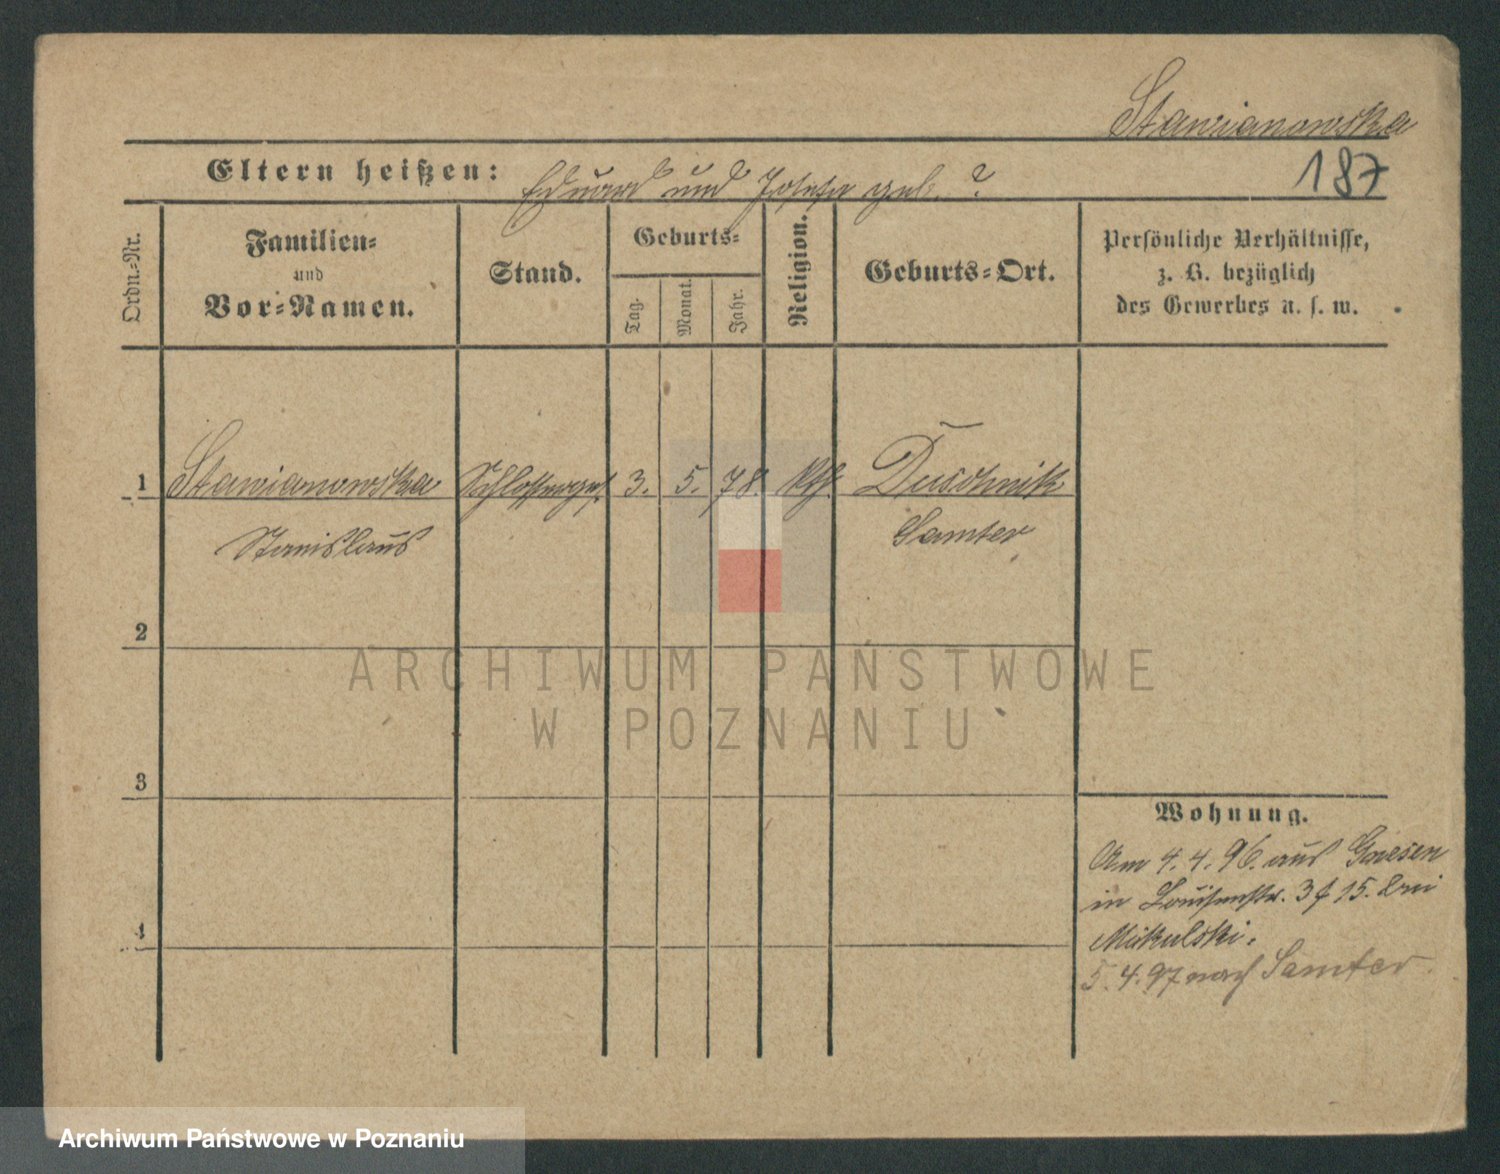 Stawianowska
187
Eltern heißen: Eduard und Josefa geb. ?
Ordn.=Nr.
Familien=
und
Vor=Namen.
Stand.
Geburts=
Tag.
Monat.
Jahr.
Religion.
Geburts=Ort.
Persönliche Verhältnisse,
z. B. bezüglich
des Gewerbes u. s. w.
1 Stawianowska Schlosserges. 3. 5. 78. kth. Duschnik
Stanislaus Samter
2
3
4
Wohnung.
Am 4.4.96. aus Gnesen
in Louisenstr. 3 15. bei
Mikulski.
5.4.97 nach Samter.
ARCHIWUM PAŃSTWOWE
W POZNANIU
Archiwum Państwowe w Poznaniu